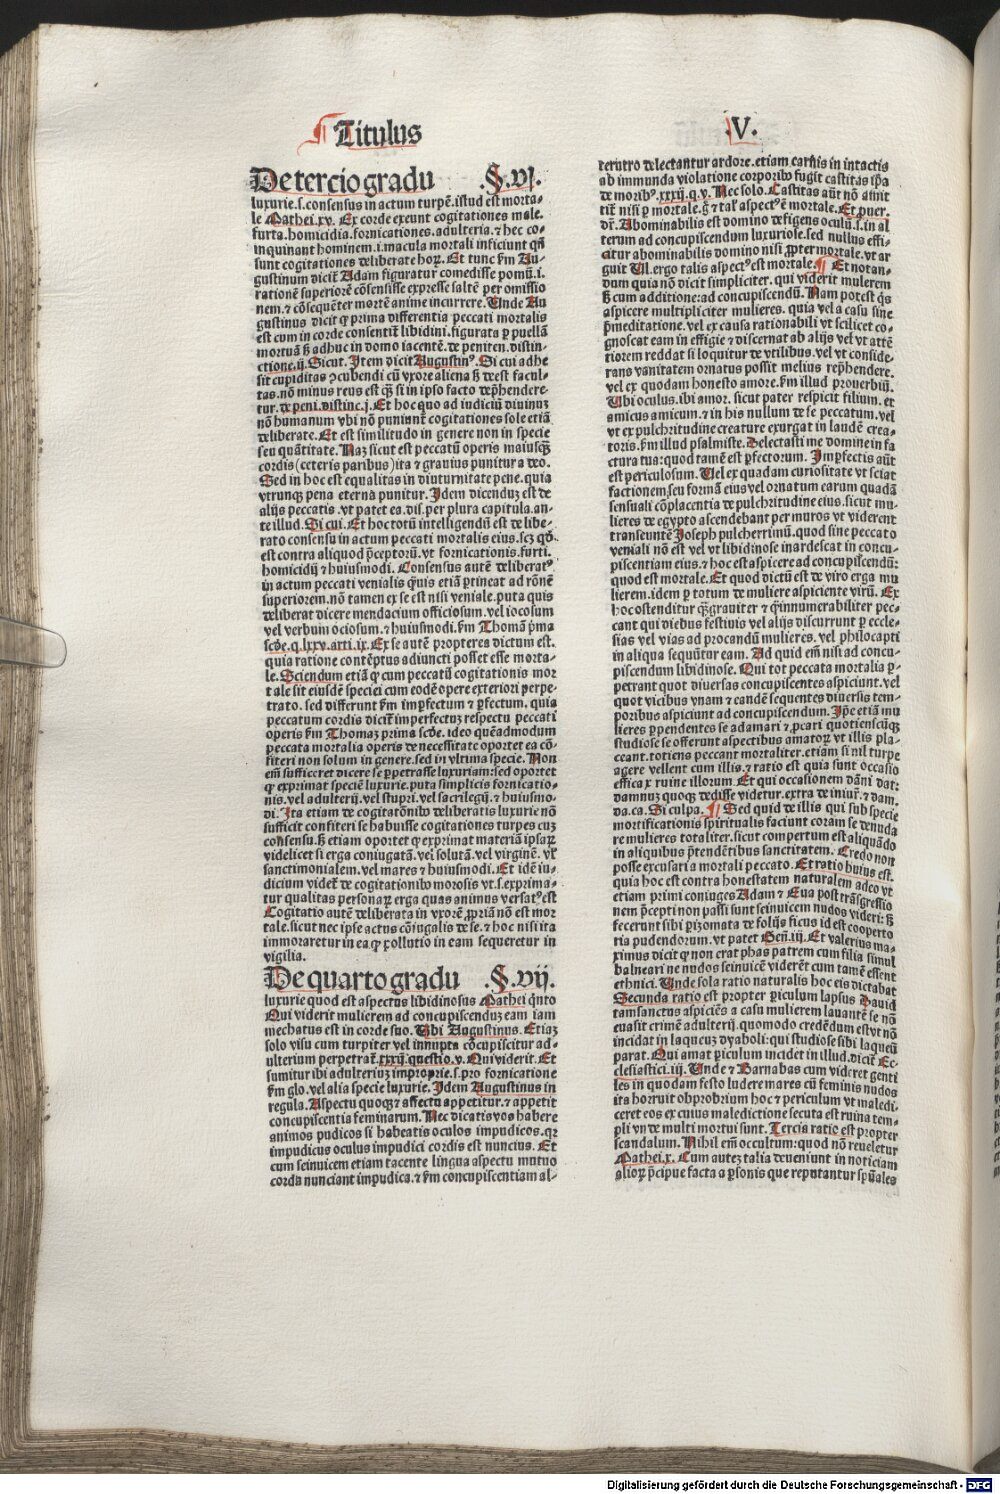 ¶ Titulus
.V.
De tercio gradu .§.vj.
luxurie.s.consensus in actum turpē.istud est morta-
le Mathei.xv. Ex corde exeunt cogitationes male.
furta.homicidia.fornicationes.adulteria.⁊ hec co-
inquinant hominem.i.macula mortali inficiunt qñ
sunt cogitationes deliberate hoꝝ. Et tunc ẜm Au-
gustinum dicit̄ Adam figuratur comedisse pomū.i.
rationē superiorē cōsensisse expresse saltē per omissio
nem.⁊ cōsequēter mortē anime incurrere. Unde Au
gustinus dicit ꝙ prima differentia peccati mortalis
est cum in corde consentit̄ libidini.figurata ꝑ puellā
mortuā ẜ adhuc in domo iacentē.de peniten.distin-
ctione.ij.Sicut. Item dicit Augustinꝰ.Si cui adhe
sit cupiditas ꝯcubendi cū vxore aliena ẜ deest facul-
tas.nō minus reus est ꝙ̄ si in ipso facto dep̄hendere-
tur.de peni.distinc.j. Et hoc quo ad iudiciū diuinuꝫ
nō humanum vbi nō puniunt̄ cogitationes sole etiā
deliberate. Et est similitudo in genere non in specie
seu quātitate. Naꝫ sicut est peccatū operis maiusꝗꝫ
cordis (ceteris paribus) ita ⁊ grauius punitur a deo.
Sed in hoc est equalitas in diuturnitate pene.quia
vtrunqꝫ pena eterna punitur. Idem dicenduꝫ est de
alijs peccatis.vt patet ea.dis.per plura capitula.an-
te illud. Si cui. Et hoc totū intelligendū est de libe-
rato consensu in actum peccati mortalis eius.scꝫ qđ
est contra aliquod p̄ceptorū.vt fornicationis.furti.
homicidij ⁊ huiusmodi. Consensus autē deliberatꝰ
in actum peccati venialis q̄uis etiā ꝑtineat ad rōnē
superiorem.nō tamen ex se est nisi veniale.puta quis
deliberat dicere mendacium officiosum.vel iocosum
vel verbum ociosum.⁊ huiusmodi.ẜm Thomā p̄ma
scd̄e.q.lxxv.arti.ix. Ex se autē propterea dictum est.
quia ratione contēptus adiuncti posset esse morta-
le. Sciendum etiā ꝙ cum peccatū cogitationis mor
tale sit eiusdē speciei cum eodē opere exteriori perpe-
trato.sed differunt ẜm imperfectum ⁊ ꝑfectum. quia
peccatum cordis dicit̄ imperfectuꝫ respectu peccati
operis ẜm Thomaꝫ prima scd̄e. ideo quēadmodum
peccata mortalia operis de necessitate oportet ea cō-
fiteri non solum in genere.sed in vltima specie. Non
em̄ sufficeret dicere se ꝑpetrasse luxuriam:sed oportet
ꝙ exprimat speciē luxurie.puta simplicis fornicatio-
nis.vel adulterij.vel stupri.vel sacrilegij.⁊ huiusmo-
di. Ita etiam de cogitatōnibꝰ deliberatis luxurie nō
sufficit confiteri se habuisse cogitationes turpes cuꝫ
consensu.ẜ etiam oportet ꝙ exprimat materiā ipsaꝝ
videlicet si erga coniugatā.vel solutā.vel virginē.vꝉ
sanctimonialem.vel mares ⁊ huiusmodi. Et idē iu-
dicium videt̄ de cogitationibꝰ morosis vt.s.exprima-
tur qualitas personaꝝ erga quas animus versatꝰ est
Cogitatio autē deliberata in vxorē ꝓpriā nō est mor
tale.sicut nec ipse actus cōiugalis de se.⁊ hoc nisi ita
immoraretur in ea.ꝙ pollutio in eam sequeretur in
vigilia.
De quarto gradu .§.vij.
luxurie quod est aspectus libidinosus Mathei q̄nto
Qui viderit mulierem ad concupiscenduꝫ eam iam
mechatus est in corde suo. Ubi Augustinus. Etiaꝫ
solo visu cum turpiter vel innupta cōcupiscitur ad-
ulterium perpetrat̄.xxxij.questio.v. Qui viderit. Et
sumitur ibi adulteriuꝫ improprie.s.pro fornicatione
ẜm glo.vel alia specie luxurie. Idem Augustinus in
regula. Aspectu quoqꝫ ⁊ affectu appetitur.⁊ appetit
concupiscentia feminarum. Nec dicatis vos habere
animos pudicos si habeatis oculos impudicos.qꝛ
impudicus oculus impudici cordis est nuncius. Et
cum seinuicem etiam tacente lingua aspectu mutuo
corda nunciant impudica.⁊ ẜm concupiscentiam al-
terutro delectantur ardore.etiam carnis in intactis
ab immunda violatione corporibꝰ fugit castitas ip̄a
de moribꝰ.xxxij.q.v. Nec solo. Castitas aūt nō amit
tit̄ nisi ꝑ mortale.g̊ ⁊ talꝭ aspectꝰ ē mortale. Et puer.
dr̄. Abominabilis est domino defigens oculū.s.in al
terum ad concupiscendum luxuriose.sed nullus effi-
citur abominabilis domino nisi ꝓpter mortale.vt ar
guit Ul.ergo talis aspectꝰ est mortale. ¶ Et notan-
dum quia nō dicit simpliciter. qui viderit mulierem
ẜ cum additione:ad concupiscendū. Nam potest q̇s
aspicere multipliciter mulieres. quia vel a casu sine
p̄meditatione.vel ex causa rationabili vt scilicet co-
gnoscat eam in effigie ⁊ discernat ab alijs vel vt attē
tiorem reddat si loquitur de vtilibus.vel vt conside-
rans vanitatem ornatus possit melius rep̄hendere.
vel ex quodam honesto amore.ẜm illud prouerbiū.
Ubi oculus.ibi amor.sicut pater respicit filium. et
amicus amicum.⁊ in his nullum de se peccatum.vel
vt ex pulchritudine creature exurgat in laudē crea-
toris.ẜm illud psalmiste. Delectasti me domine in fa
ctura tua:quod tamē est ꝑfectorum. Imꝑfectis aūt
est periculosum. Uel ex quadam curiositate vt sciat
factionem seu formā eius vel ornatum earum quadā
sensuali cōplacentia de pulchritudine eius.sicut mu-
lieres de egypto ascendebant per muros vt viderent
transeuntē Joseph pulcherrimū.quod sine peccato
veniali nō est vel vt libidinose inardescat in concu-
piscentiam eius.⁊ hoc est aspicere ad concupiscendū:
quod est mortale. Et quod dictū est de viro erga mu
lierem.idem ꝑ totum de muliere aspiciente virū. Ex
hoc ostenditur ꝙ̄ grauiter ⁊ q̄ innumerabiliter pec-
cant qui diebus festiuis vel alijs discurrunt ꝑ eccle-
sias vel vias ad procandū mulieres.vel philocapti
in aliqua sequūtur eam. Ad quid em̄ nisi ad concu-
piscendum libidinose. Qui tot peccata mortalia ꝑ-
petrant quot diuersas concupiscentes aspiciunt.vel
quot vicibus vnam ⁊ eandē sequentes diuersis tem-
poribus aspiciunt ad concupiscendum. Ip̄e etiā mu
lieres ꝑpendentes se adamari ⁊ ꝓcari quotienscūqꝫ
studiose se offerunt aspectibus amatoꝝ vt illis pla-
ceant.totiens peccant mortaliter.etiam si nil turpe
agere vellent cum illis.⁊ ratio est quia sunt occasio
efficax ruine illorum Et qui occasionem dāni dat:
damnuꝫ quoqꝫ dedisse videtur.extra de iniur̄.⁊ dam.
da.ca. Si culpa. ¶ Sed quid de illis qui sub specie
mortificationis spiritualis faciunt coram se denuda
re mulieres totaliter.sicut compertum est aliquādo
in aliquibus p̄tendētibus sanctitatem. Credo non
posse excusari a mortali peccato. Et ratio huius est.
quia hoc est contra honestatem naturalem adeo vt
etiam primi coniuges Adam ⁊ Eua post trāsgressio
nem p̄cepti non passi sunt seinuicem nudos videri:ẜ
fecerunt sibi ꝑizomata de folijs ficus id est cooperto
ria pudendorum.vt patet Geñ.iij. Et valerius ma-
ximus dicit ꝙ non erat phas patrem cum filia simul
balneari ne nudos seinuicē viderēt cum tamē essent
ethnici. Unde sola ratio naturalis hoc eis dictabat
Secunda ratio est propter ꝑiculum lapsus Dauid
tam sanctus aspiciēs a casu mulierem lauantē se nō
euasit crimē adulterij.quomodo credēdum est vt nō
incidat in laqueuꝫ dyaboli:qui studiose sibi laqueū
parat. Qui amat ꝑiculum incidet in illud.dicit̄ Ec-
clesiastici.iij. Unde ⁊ Barnabas cum videret genti
les in quodam festo ludere mares cū feminis nudos
ita horruit obprobrium hoc ⁊ periculum vt maledi-
ceret eos ex cuius maledictione secuta est ruina tem-
pli vnde multi mortui sunt. Tercia ratio est propter
scandalum. Nihil em̄ occultum:quod nō reueletur
Mathei.x. Cum auteꝫ talia deueniunt in noticiam
alioꝝ p̄cipue facta a ꝑsonis que reputantur sp̄uales
Digitalisierung gefördert durch die Deutsche Forschungsgemeinschaft - DFG